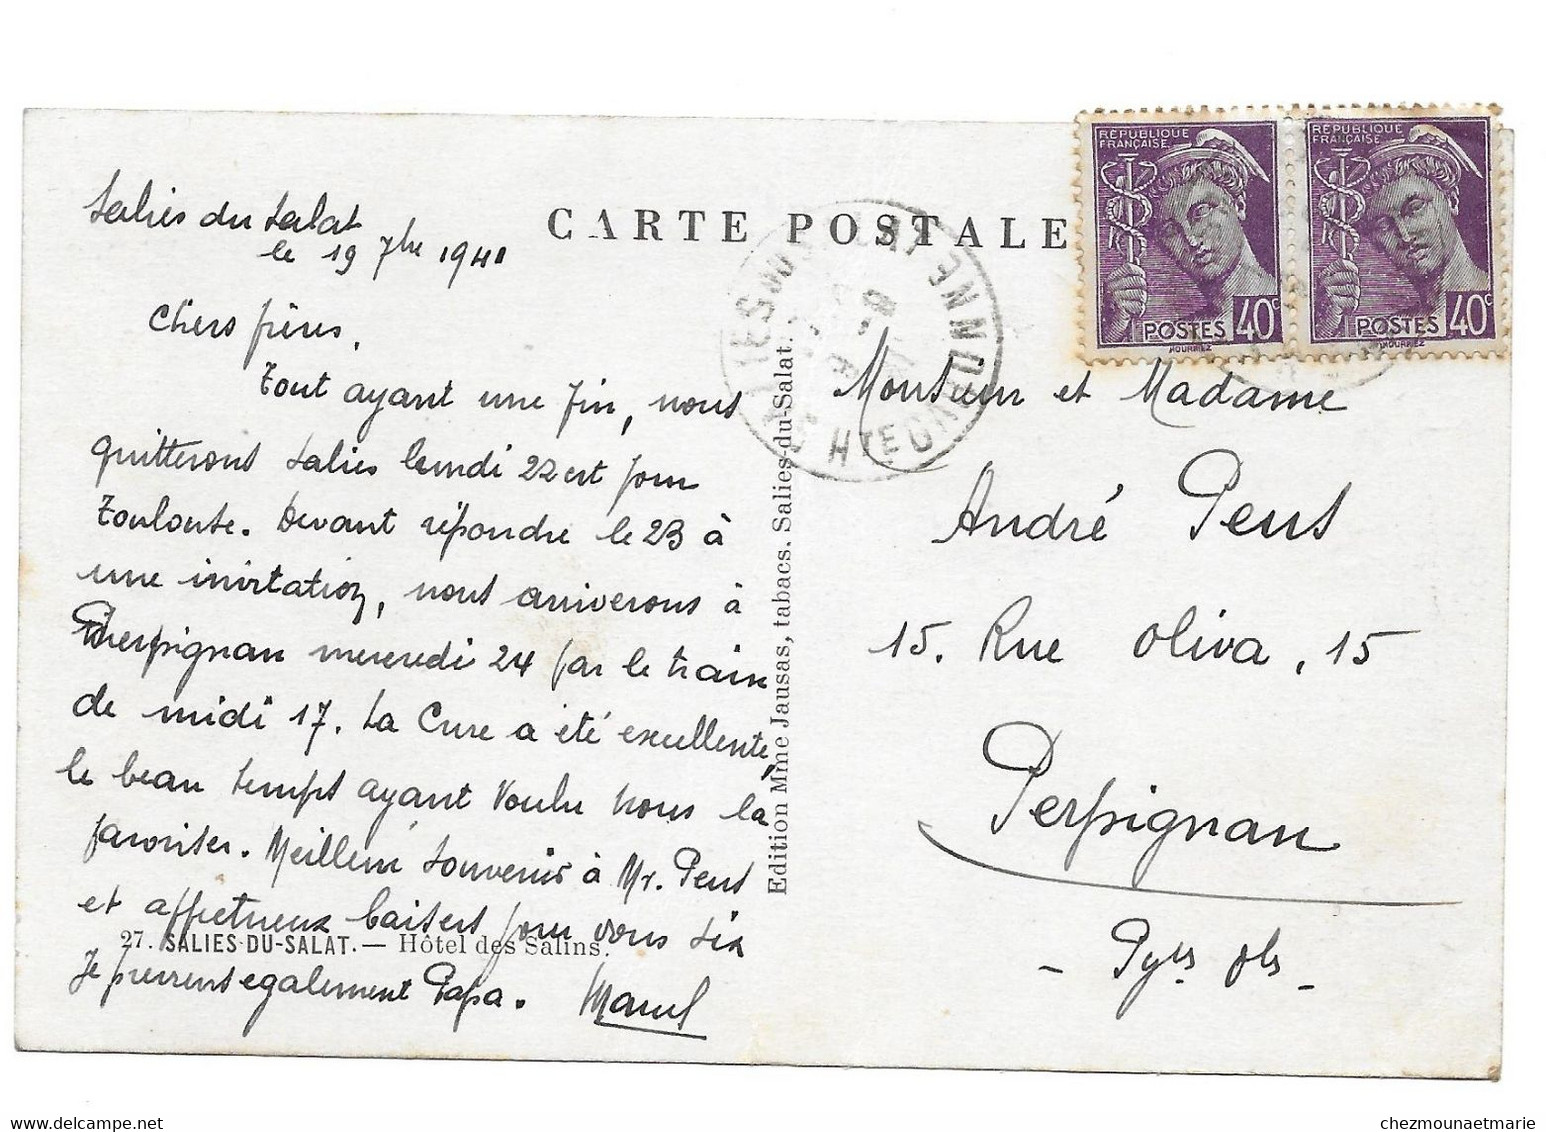 Salies du Salat
le 19 7bre 1941
Chers frères,
Tout ayant une fin, nous
quitterons Salies lundi 22 ct pour
Toulouse. Devant répondre le 23 à
une invitation, nous arriverons à
Perpignan mercredi 24 par le train
de midi 17. La Cure a été excellente,
le beau temps ayant voulu nous la
favoriser. Meilleur souvenir à Mr. Pens
et affectueux baisers pour vous six
Je previens egalement Papa. Marcel
27. SALIES-DU-SALAT. — Hôtel des Salins.
CARTE POSTALE
Edition Mme Jausas, tabacs. Salies-du-Salat.
HTE GARONNE
RÉPUBLIQUE
FRANÇAISE
POSTES 40c
HOURRIEZ
RÉPUBLIQUE
FRANÇAISE
POSTES 40c
HOURRIEZ
Monsieur et Madame
André Pens
15. Rue Oliva, 15
Perpignan
- Pyrs Ols -
www.delcampe.net
chezmounaetmarie